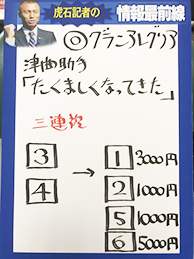 虎石記者の
情報最前線
◎グランアレグリア
津曲助手
「たくましくなってきた」
三連複
3 → 1 3000円
4 2 1000円
5 1000円
6 5000円